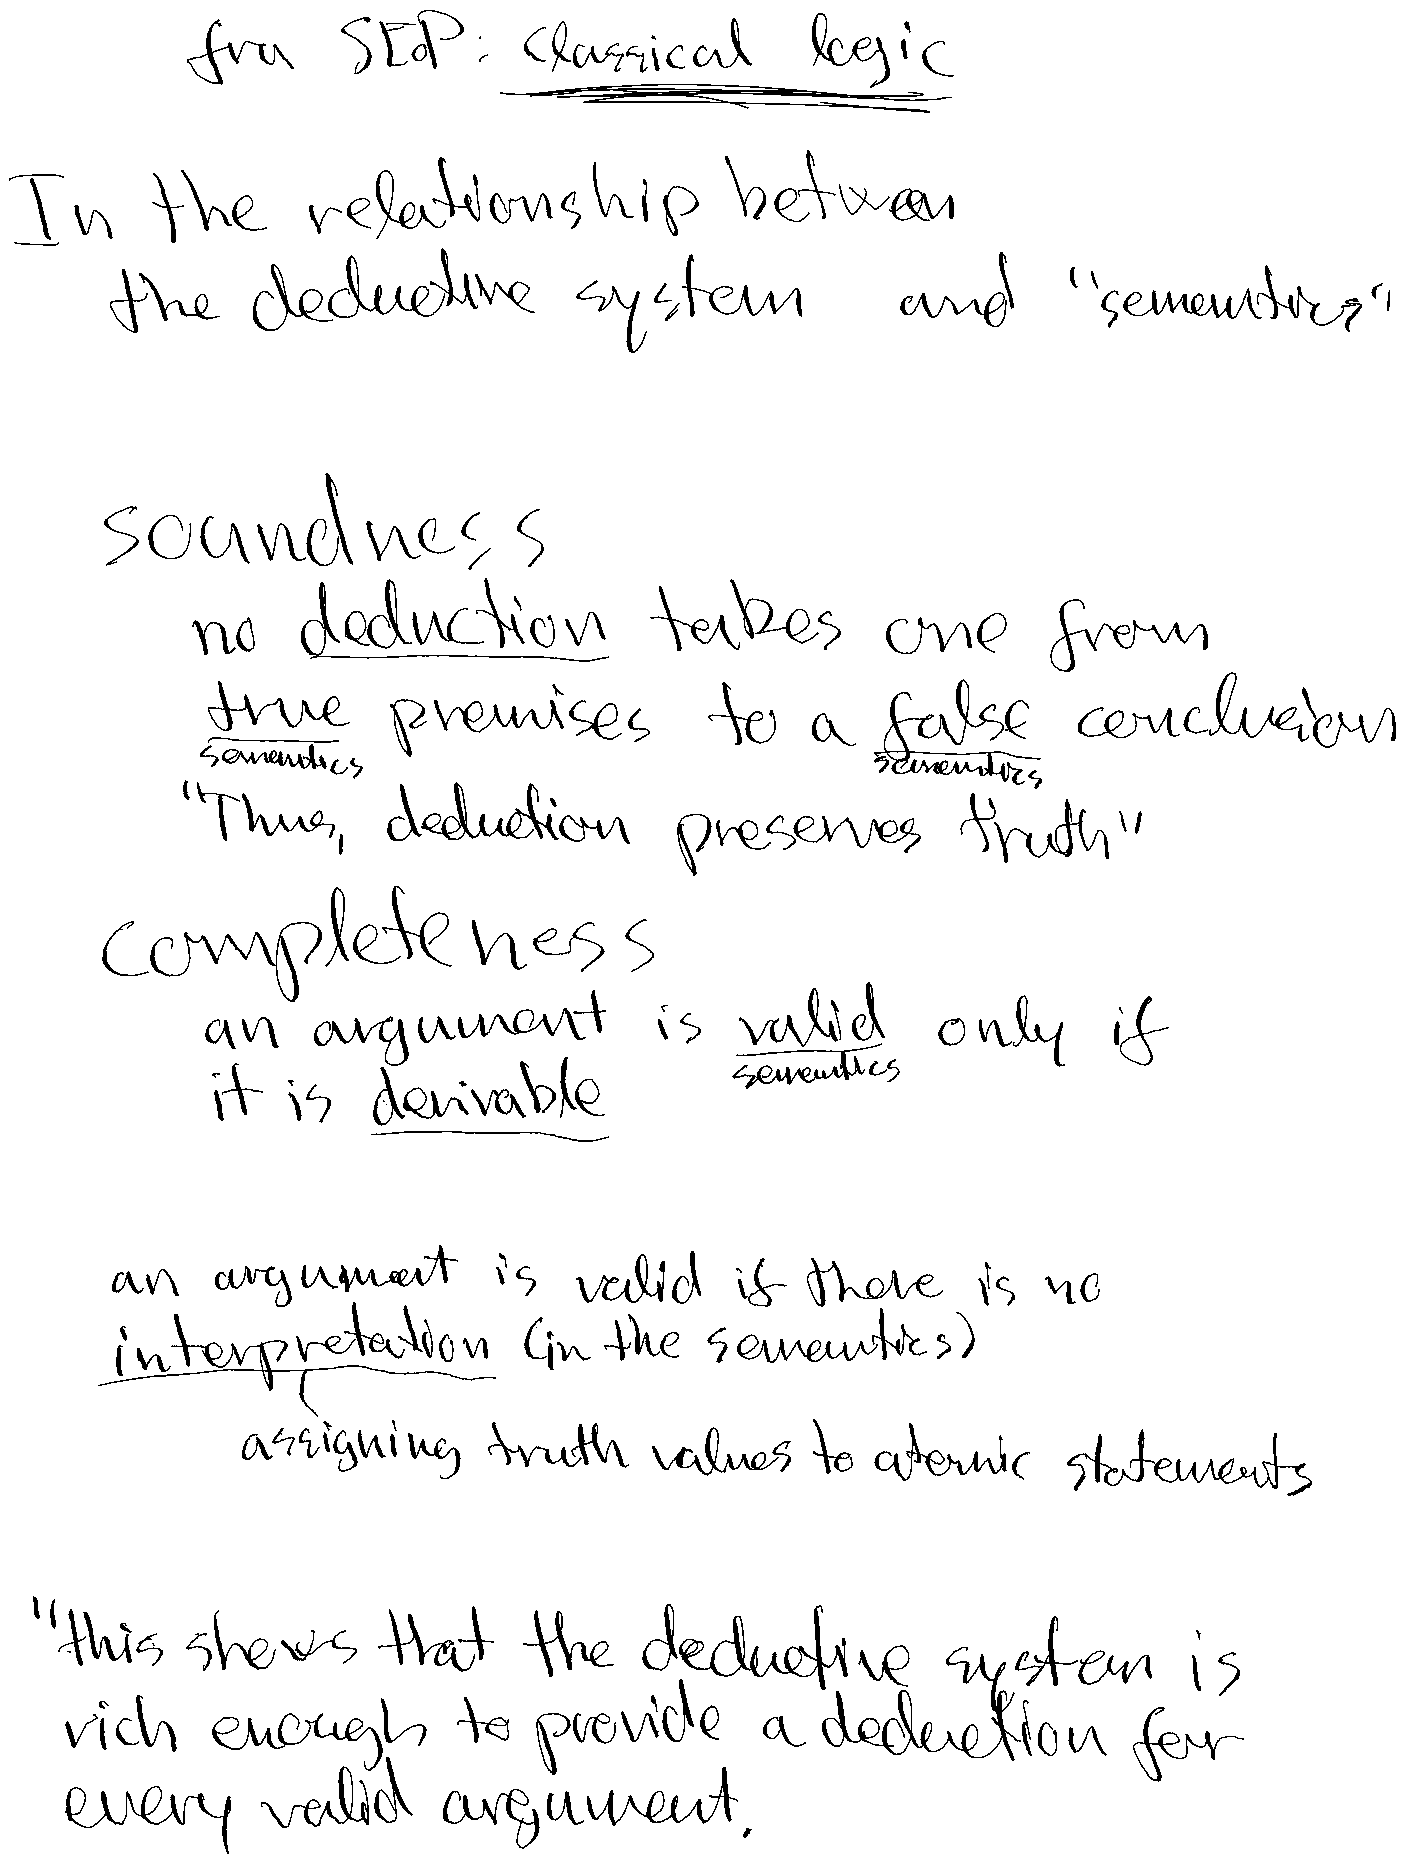 fra SEP: Classical logic
In the relationship between
the deductive system and "semantics"
soundness
no deduction takes one from
true premises to a false conclusion
semantics semantics
"Thus, deduction preserves truth"
completeness
an argument is valid only if
semantics
it is derivable
an argument is valid if there is no
interpretation (in the semantics)
assigning truth values to atomic statements
"this shows that the deductive system is
rich enough to provide a deduction for
every valid argument.